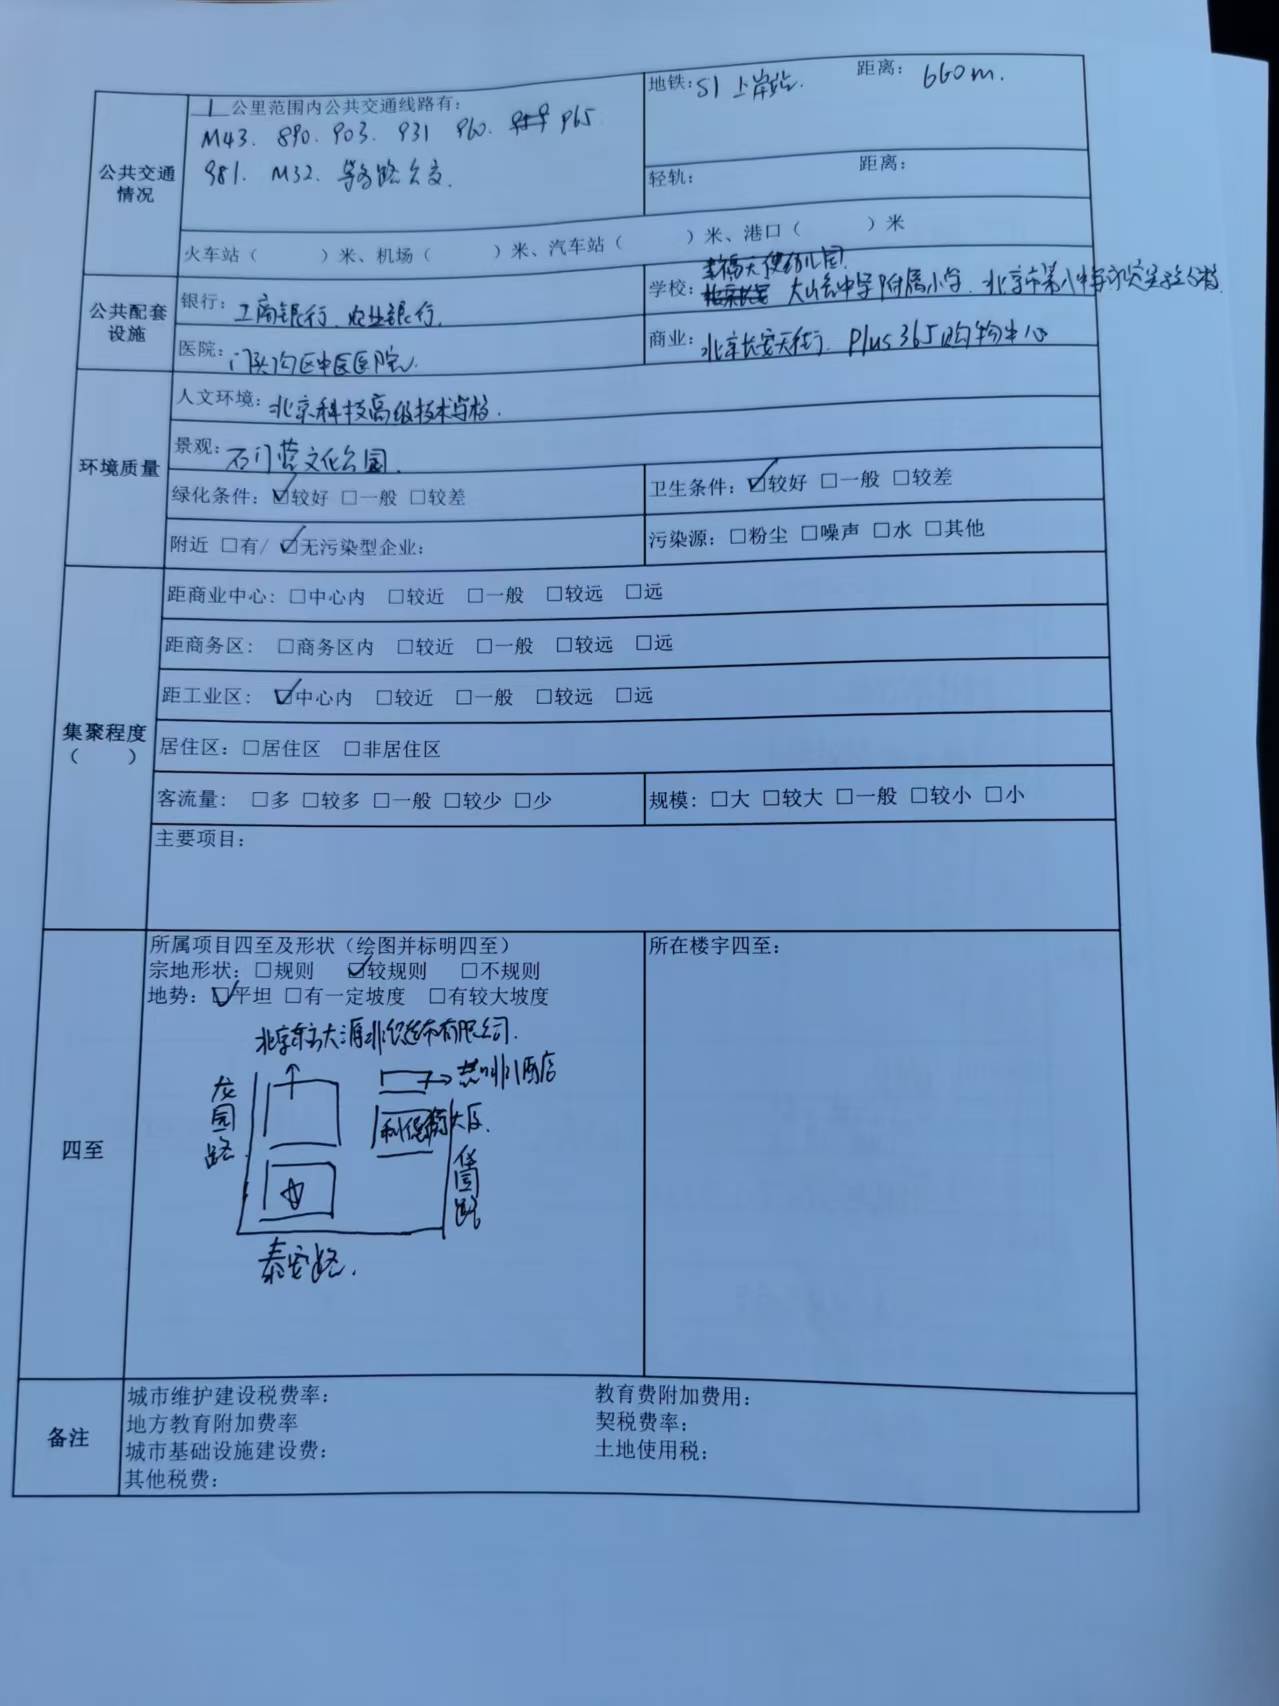 公共交通情况
1 公里范围内公共交通线路有:
M43. 890. 903. 931 960. 965
981. M32. 等多路公交.
地铁: S1 上岸站. 距离: 660m.
轻轨: 距离:
火车站( )米、机场( )米、汽车站( )米、港口( )米
公共配套设施
银行: 工商银行. 农业银行.
幸福天使幼儿园.
学校: 大峪中学附属小学. 北京市第八中学
医院: 门头沟区中医医院.
商业: 北京长安天街. Plus 365购物中心
环境质量
人文环境: 北京科技高级技术学校.
景观: 石门营文化公园.
绿化条件: ☑较好 □一般 □较差
卫生条件: ☑较好 □一般 □较差
附近 □有/ ☑无污染型企业:
污染源: □粉尘 □噪声 □水 □其他
集聚程度
( )
距商业中心: □中心内 □较近 □一般 □较远 □远
距商务区: □商务区内 □较近 □一般 □较远 □远
距工业区: ☑中心内 □较近 □一般 □较远 □远
居住区: □居住区 □非居住区
客流量: □多 □较多 □一般 □较少 □少
规模: □大 □较大 □一般 □较小 □小
主要项目:
四至
所属项目四至及形状(绘图并标明四至)
宗地形状: □规则 ☑较规则 □不规则
地势: ☑平坦 □有一定坡度 □有较大坡度
所在楼宇四至:
有限公司.
酒店
园路
大厦.
园路
泰安路.
备注
城市维护建设税费率: 教育费附加费用:
地方教育附加费率 契税费率:
城市基础设施建设费: 土地使用税:
其他税费: